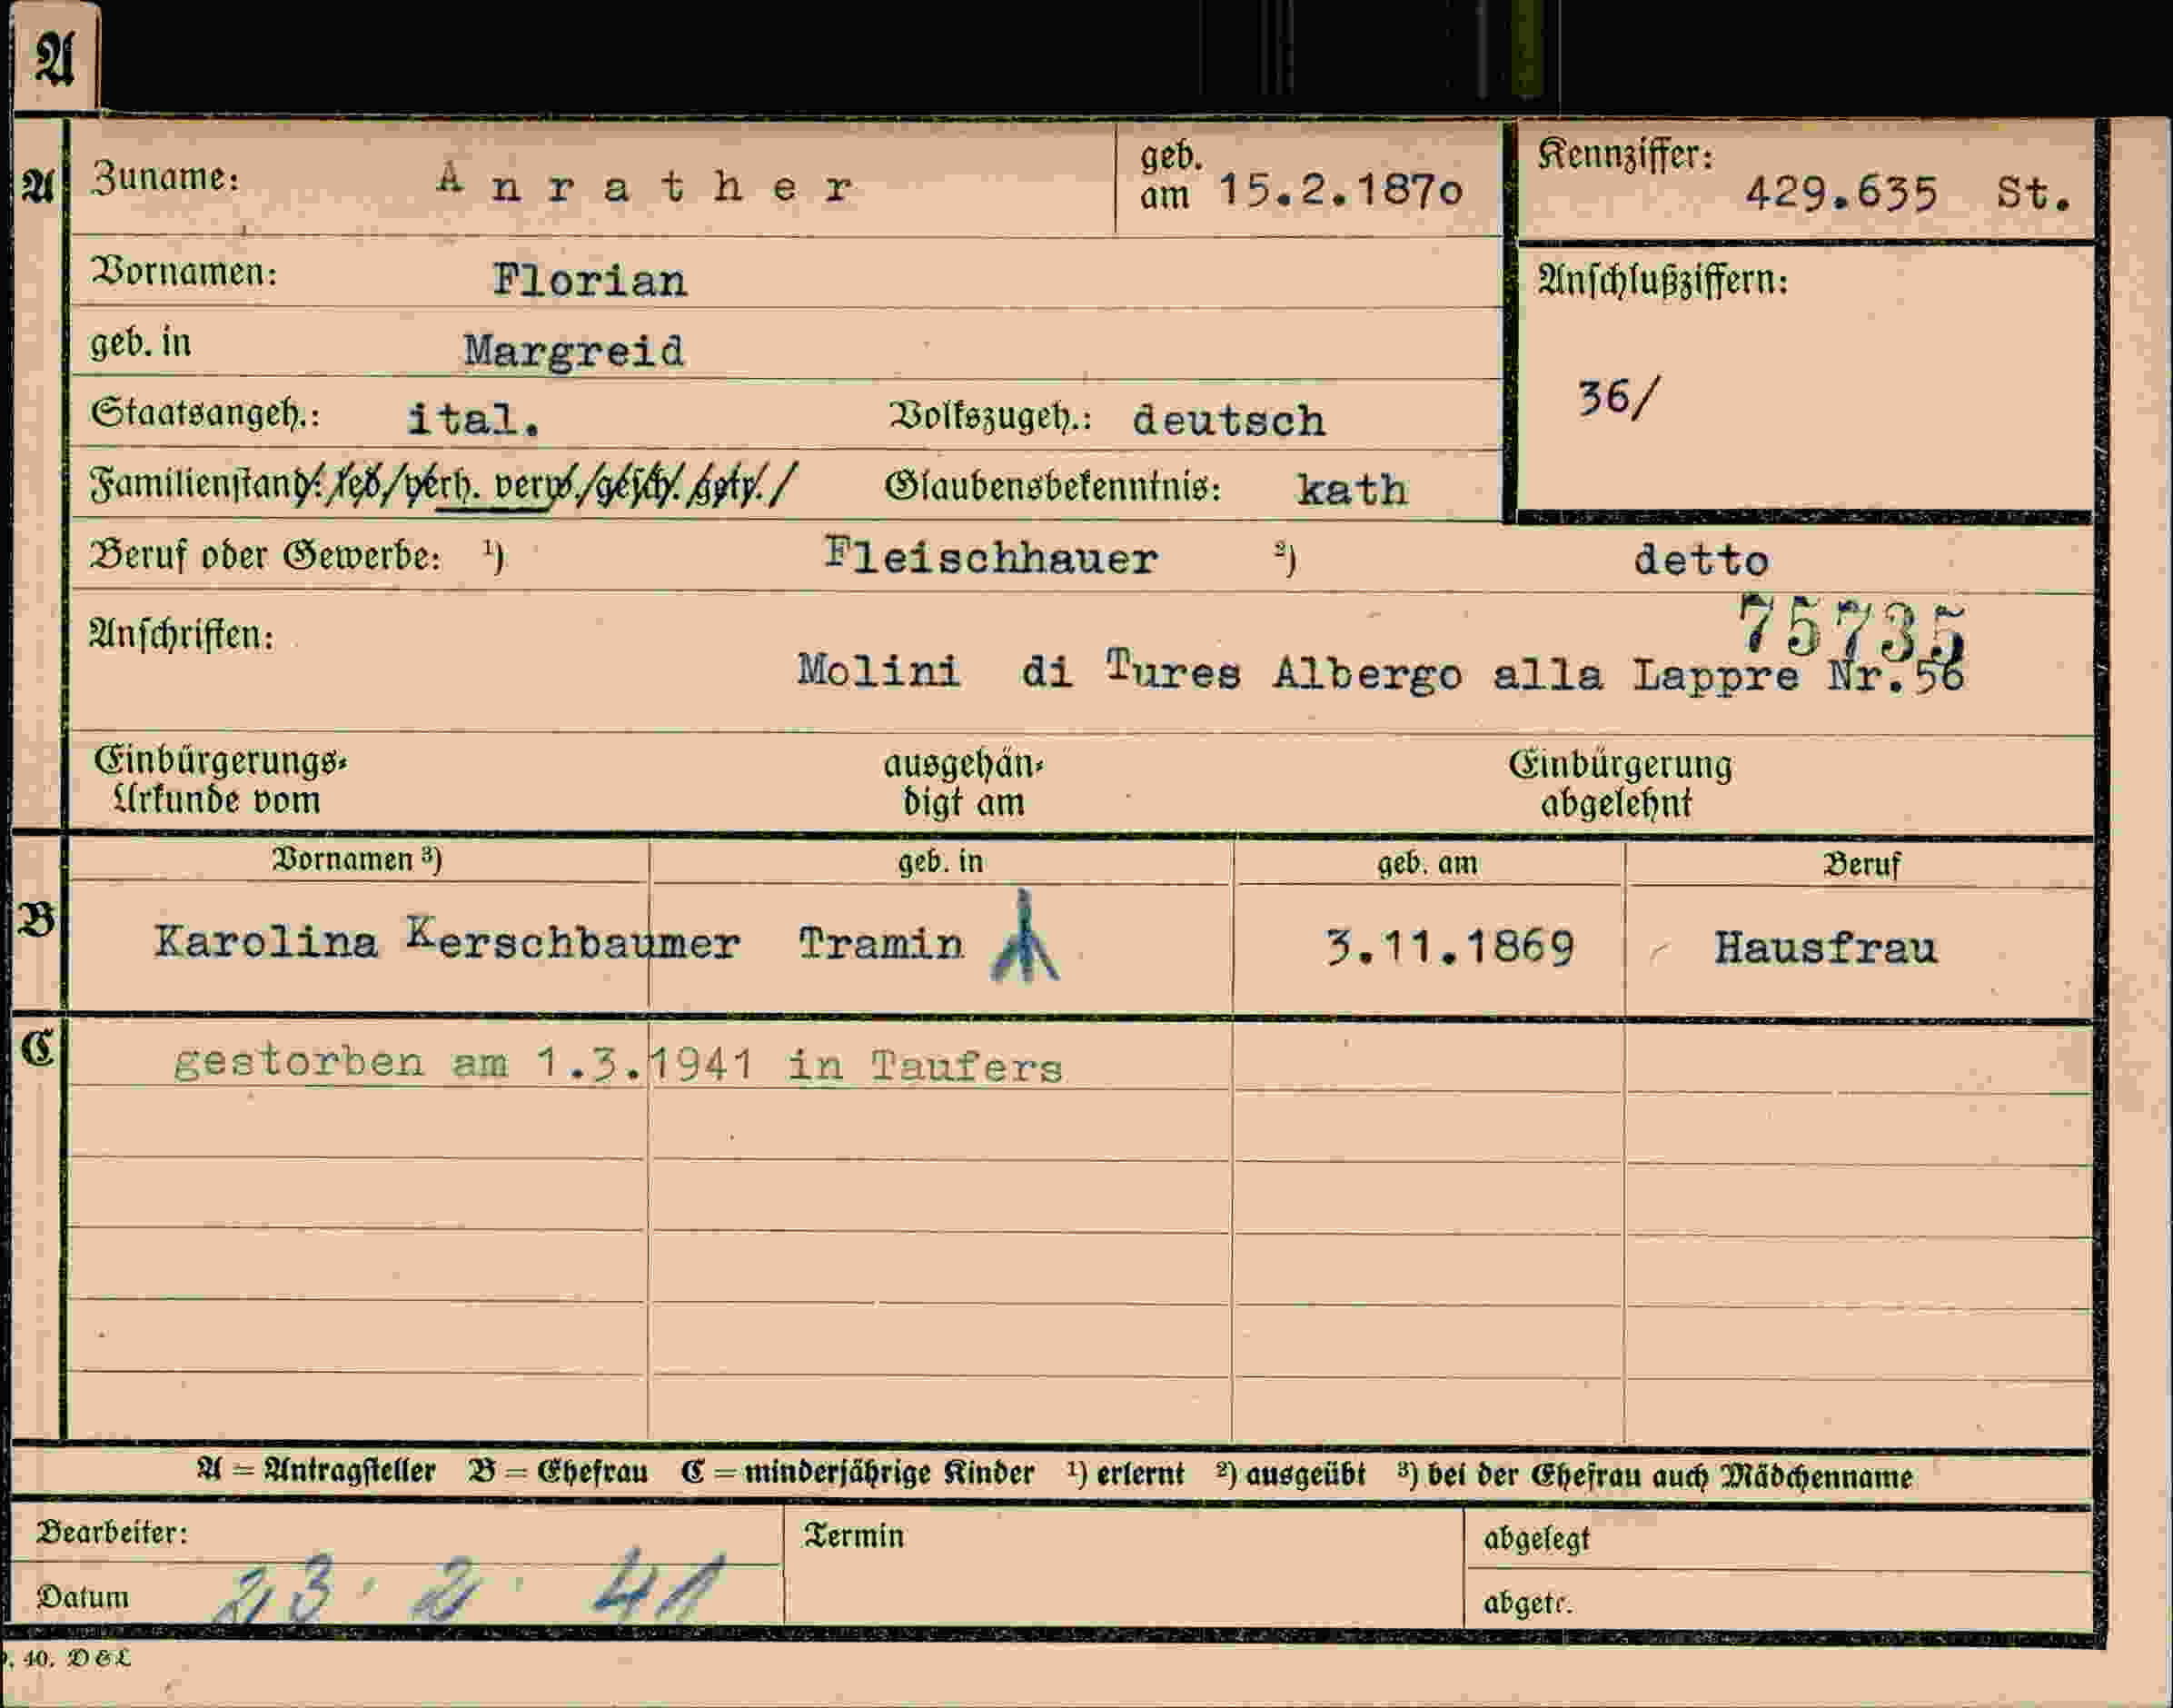 A
A
Zuname: Anrather geb. am 15.2.1870 Kennziffer: 429.635 St.
Vornamen: Florian
Anschlußziffern: 36/
geb. in Margreid
Staatsangeh.: ital. Volkszugeh.: deutsch
Familienstand: led./verh. verw./gesch./getr./ Glaubensbekenntnis: kath
Beruf oder Gewerbe: ¹) Fleischhauer ²) detto
75735
Anschriften: Molini di Tures Albergo alla Lappre Nr.56
Einbürgerungs-Urkunde vom ausgehändigt am Einbürgerung abgelehnt
Vornamen ³) geb. in geb. am Beruf
B Karolina Kerschbaumer Tramin 3.11.1869 Hausfrau
C gestorben am 1.3.1941 in Taufers
A = Antragsteller B = Ehefrau C = minderjährige Kinder ¹) erlernt ²) ausgeübt ³) bei der Ehefrau auch Mädchenname
Bearbeiter: Termin abgelegt
Datum 23. 2. 41 abgetr.
40. D & L